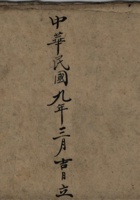 中華民國九年三月吉日立